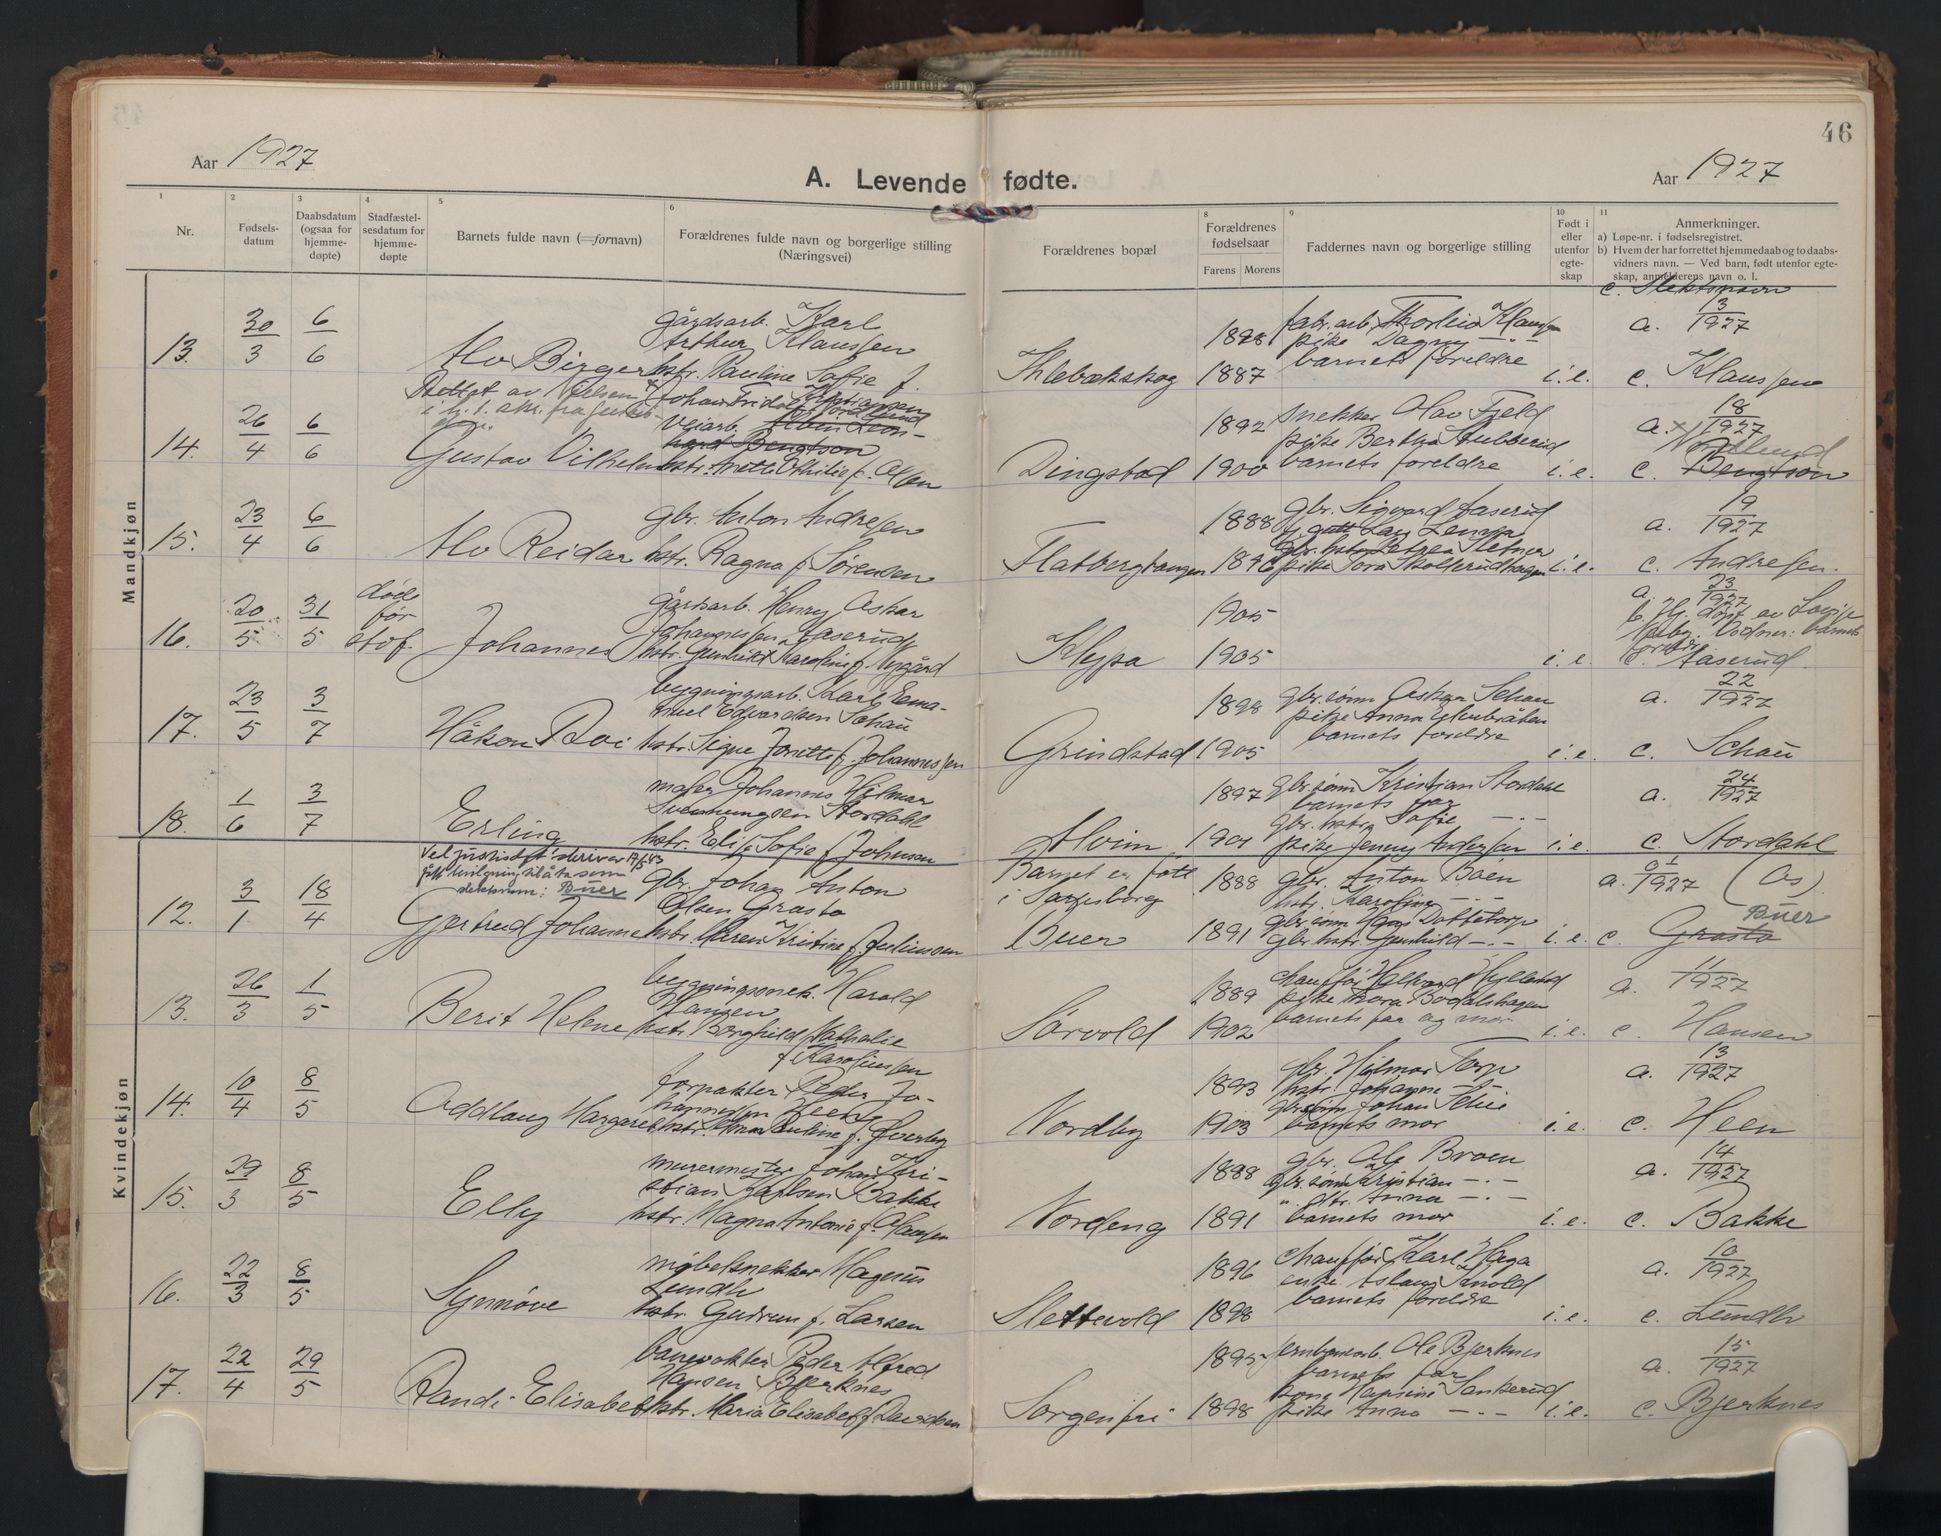 46
Aar 1927
A. Levende fødte.
Aar 1927
1
Nr.
2
Fødsels-
datum
3
Daabsdatum
(ogsaa for
hjemme-
døpte)
4
Stadfæstel-
sesdatum for
hjemme-
døpte
5
Barnets fulde navn (=fornavn)
6
Forældrenes fulde navn og borgerlige stilling
(Næringsvei)
Forældrenes bopæl
8
Forældrenes
fødselsaar
Farens Morens
9
Faddernes navn og borgerlige stilling
10
Født i
eller
utenfor
egte-
skap
11
Anmerkninger.
a) Løpe-nr. i fødselsregistret.
b) Hvem der har forrettet hjemmedaab og to daabs-
vidners navn. — Ved barn, født utenfor egte-
skap, anmelderens navn o. l.
c. Slektsnavn
Mandkjøn
13. 30/3 6/6 Alv Birger
gårdsarb. Karl
Arthur Klaussen
hstr. Pauline Sofie f.
Nilsen
1898
1887
fabr. arb. Thorleiv Klaussen
pike Dagny —.—
barnets foreldre
i.e.
a. 3/1927
c. Klaussen
14. 26/4 6/6 Gustav Vilhelm
Johan Fridolf Kristiansen
Veiarb.
hstr. Anette Othilie f. Olsen
Dingstad
1892
1900
snekker Olav Fjeld
pike Bertha Stubberud
barnets foreldre
i.e.
a. x 18/1927
c. Bengtson
15. 23/4 6/6 Alv Reidar
gbr. Anton Andresen
hstr. Ragna f. Sørensen
Flatbergtangen
1888
gbr. Sigvard Aaserud
i.e.
a. 19/1927
c. Andresen.
16. 20/5 31/5
død
før
stdf.
Johannes
gårdsarb. Henry Oskar
Johannessen Aaserud
hstr. Gunhild Karoline f. Nygård
Kleppa
1905
1905
i.e.
a. 23/1927
b. Hj. døpt av Lovise
c. Aaserud.
17. 23/5 3/7 Håkon Roi
bygningsarb. Karl Ema-
nuel Edvardsen Schau
hstr. Signe Jonette f. Johannessen
Grindstad
1898
1905
gbr. sønn Oskar Schau
pike Anna
barnets foreldre
i.e.
a. 22/1927
c. Schau
18. 1/6 3/7 Erling
maler Johannes Hilmar
Svenningsen Stordahl
hstr. Elise Sofie f. Johnsen
Alvim
1897
1901
gbr. sønn Kristian Stordahl
barnets far
gbr. hstr. Sofie —.—
pike Jenny Andersen
i.e.
a. 24/1927
c. Stordahl
Kvindekjøn
12. 3/1 18/4
slektsnavn: Buer
Gjertrud Johanne
gbr. Johan Anton
Olsen Grasto
hstr. Maren Kristine f. Juliussen
Barnet er født
i Sarpsborg
Buer
1888
1891
gbr. Anton Båen
hstr. Karoline —.—
gbr. sønn Hans Dattetorp
gbr. hstr. Gunhild —.—
i.e.
a. 1/1927 (Os)
Buer
c. Grasto
13. 26/3 1/5 Berit Helene
bygningssnek. Harald
Hansen
hstr. Borghild Nathalie
f. Karolinsen
Sørvold
1889
1902
chauffør Halvard Hyllestad
pike Thora Bodalshagen
barnets far og mor
i.e.
a. 11/1927
c. Hansen
14. 10/4 8/5 Oddlaug Margaret
forpakter Peder Jo-
hannessen Heen
hstr. Anna Pauline f. Øverby
Nordby
1893
1903
gbr. Hjelmar Torp
hstr. Johanne —.—
gbr. sønn Johan Schie
barnets mor
i.e.
a. 13/1927
c. Heen
15. 29/3 8/5 Elly
murermester Johan Kri-
stian Karlsen Bakke
hstr. Magna Antonie f. Olaussen
Nordeng
1888
1891
gbr. Ole Broen
gbr. sønn Kristian —.—
" dtr. Anna —.—
barnets mor
i.e.
a. 14/1927
c. Bakke
16. 22/3 8/5 Synnøve
møbelsnekker Magnus
Lundh
hstr. Gudrun f. Larsen
Slettevold
1896
1898
chauffør Karl Haga
enke Aslaug Knold
barnets foreldre
i.e.
a. 10/1927
c. Lundh
17. 22/4 29/5 Randi Elisabet
banevokter Peder Alfred
Hansen Bjerknes
hstr. Maria Elisabet f. Davidsen
Sorgenfri
1895
1898
jernbanearb. Ole Bjerknes
barnets far
kone Hansine Sankerud
pike Anna —.—
i.e.
a. 15/1927
c. Bjerknes